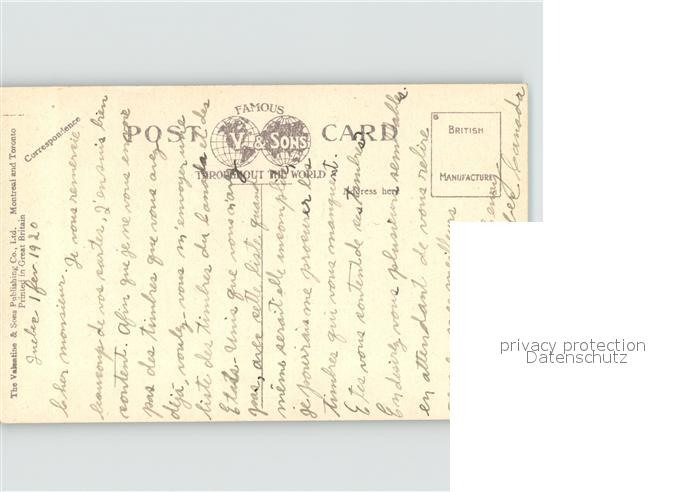 The Valentine & Sons Publishing Co., Ltd. Montreal and Toronto
Printed in Great Britain
Correspondence
FAMOUS
POST CARD
V. & SONS
THROUGHOUT THE WORLD
Address here
BRITISH
MANUFACTURE
Quebec 1 fev 1920
Cher monsieur. Je vous remercie
beaucoup de vos cartes, j'en suis bien
content. Afin que je ne vous envoie
pas des timbres que vous avez
déjà, voulez-vous m'envoyer une
liste des timbres du Canada et des
Etats-Unis que vous n'avez
pas, avec cette liste quand
même serait-elle incomplète
je pourrais me procurer les
timbres qui vous manquent.
Etes vous content de ces timbres
En désirez vous plusieurs semblables.
en attendant de vous relire
meilleurs
Canada
privacy protection
Datenschutz